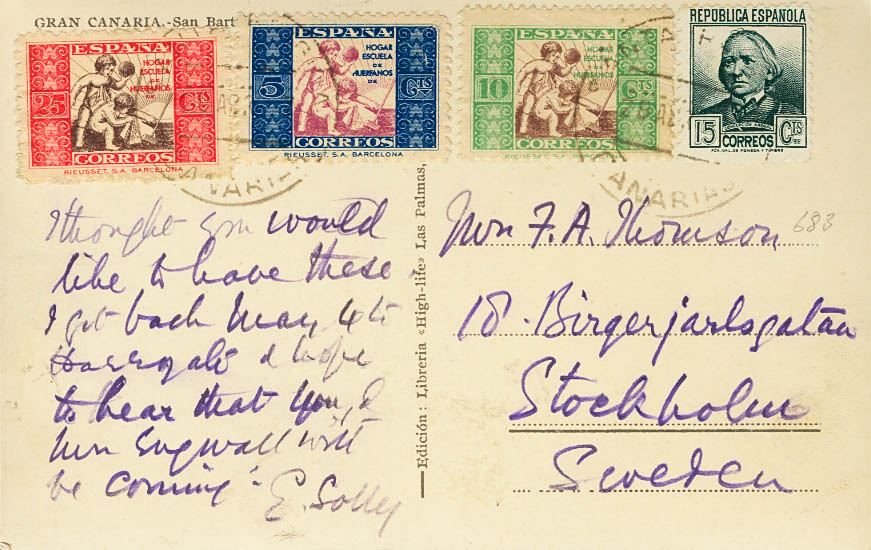 GRAN CANARIA.-San Bart
ESPAÑA
HOGAR
ESCUELA
DE
HUERFANOS
DE
25 Cts
CORREOS
RIEUSSET, S.A. BARCELONA
ESPAÑA
HOGAR
ESCUELA
DE
HUERFANOS
DE
5 Cts
CORREOS
RIEUSSET, S.A. BARCELONA
ESPAÑA
HOGAR
ESCUELA
DE
HUERFANOS
10 Cts
CORREOS
RIEUSSET, S.A.
REPÚBLICA ESPAÑOLA
15 Cts
CORREOS
CANARIAS
ANARIAS
I thought you would
like to have these.
I get back May 4 to
Harrogate & hope
to hear that you, &
Mrs will
be coming.
E. Solly
Edición: Librería «High-life» Las Palmas,
Mrs F. A. Thomson
683
18. Birgerjarlsgatan
Stockholm
Sweden